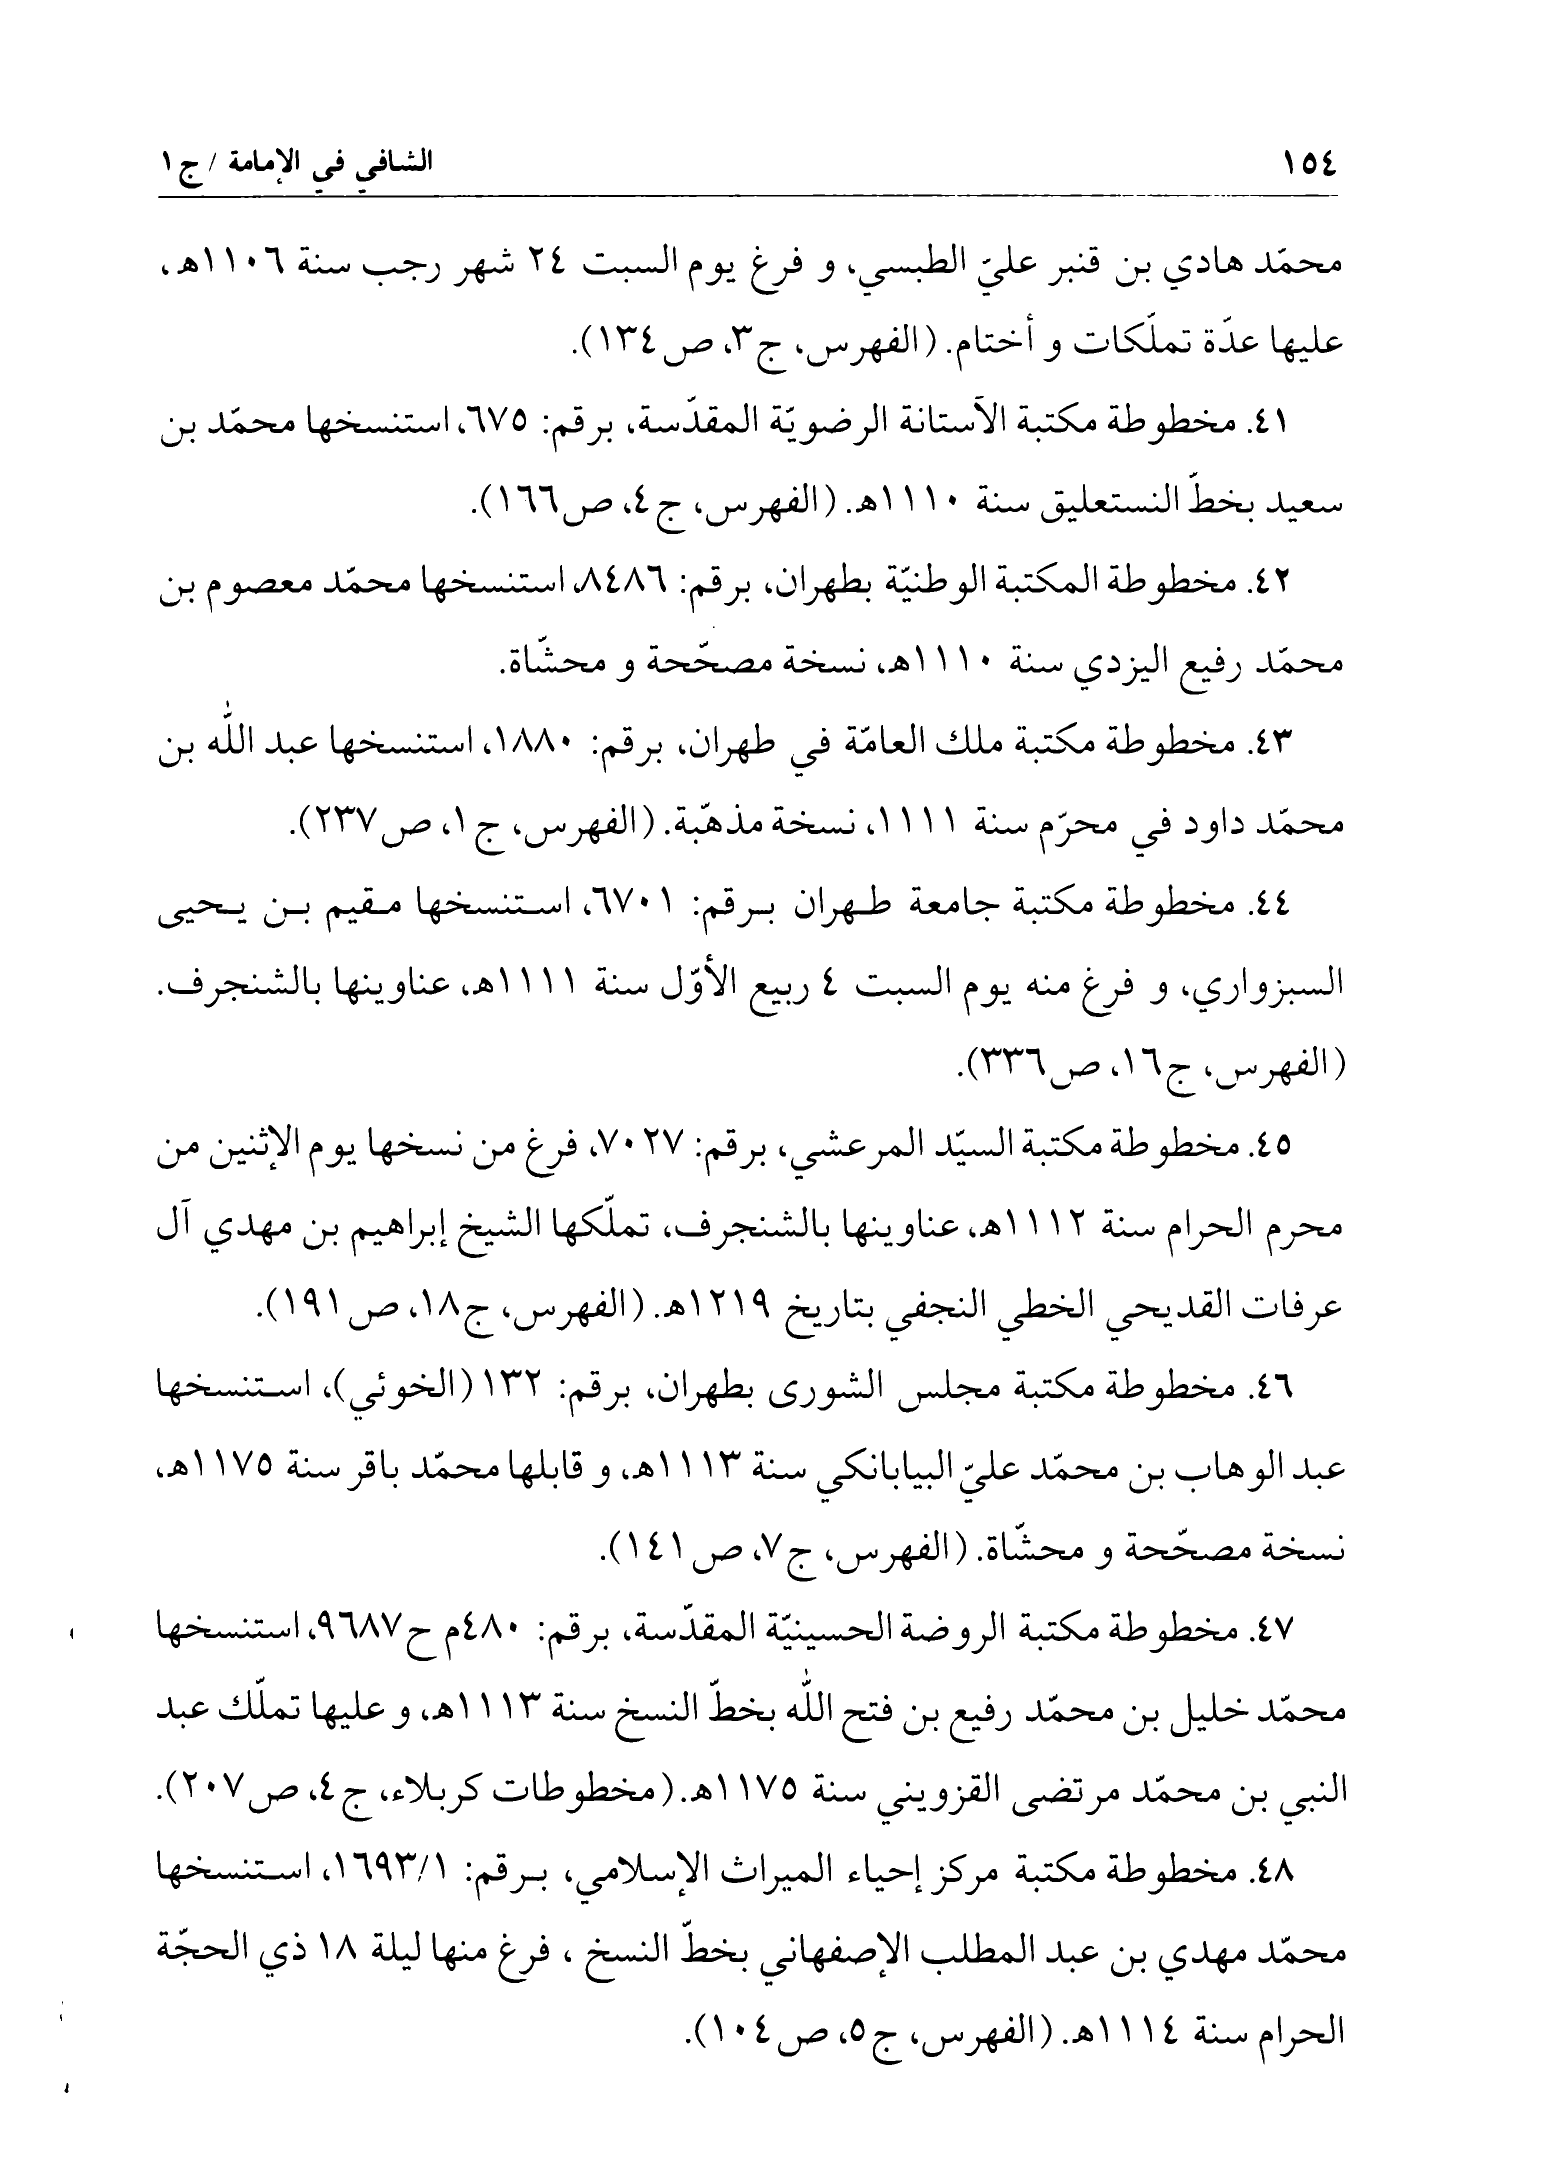 ١٥٤ الشافي في الإمامة / ج ١
محمّد هادي بن قنبر عليّ الطبسي، و فرغ يوم السبت ٢٤ شهر رجب سنة ١١٠٦هـ،
عليها عدّة تملّكات و أختام. (الفهرس، ج٣، ص١٣٤).
٤١. مخطوطة مكتبة الآستانة الرضويّة المقدّسة، برقم: ٦٧٥، استنسخها محمّد بن
سعيد بخطّ النستعليق سنة ١١١٠هـ. (الفهرس، ج٤، ص١٦٦).
٤٢. مخطوطة المكتبة الوطنيّة بطهران، برقم: ٨٤٨٦، استنسخها محمّد معصوم بن
محمّد رفيع اليزدي سنة ١١١٠هـ، نسخة مصحّحة و محشّاة.
٤٣. مخطوطة مكتبة ملك العامّة في طهران، برقم: ١٨٨٠، استنسخها عبد اللّٰه بن
محمّد داود في محرّم سنة ١١١١، نسخة مذهّبة. (الفهرس، ج١، ص٢٣٧).
٤٤. مخطوطة مكتبة جامعة طهران برقم: ٦٧٠١، استنسخها مقيم بن يحيى
السبزواري، و فرغ منه يوم السبت ٤ ربيع الأوّل سنة ١١١١هـ، عناوينها بالشنجرف.
(الفهرس، ج١٦، ص٣٣٦).
٤٥. مخطوطة مكتبة السيّد المرعشي، برقم: ٧٠٢٧، فرغ من نسخها يوم الإثنين من
محرم الحرام سنة ١١١٢هـ، عناوينها بالشنجرف، تملّكها الشيخ إبراهيم بن مهدي آل
عرفات القديحي الخطي النجفي بتاريخ ١٢١٩هـ. (الفهرس، ج١٨، ص١٩١).
٤٦. مخطوطة مكتبة مجلس الشورى بطهران، برقم: ١٣٢ (الخوئي)، استنسخها
عبد الوهاب بن محمّد عليّ البيابانكي سنة ١١١٣هـ، و قابلها محمّد باقر سنة ١١٧٥هـ،
نسخة مصحّحة و محشّاة. (الفهرس، ج٧، ص١٤١).
٤٧. مخطوطة مكتبة الروضة الحسينيّة المقدّسة، برقم: ٤٨٠م ح٩٦٨٧، استنسخها
محمّد خليل بن محمّد رفيع بن فتح اللّٰه بخطّ النسخ سنة ١١١٣هـ، و عليها تملّك عبد
النبي بن محمّد مرتضى القزويني سنة ١١٧٥هـ. (مخطوطات كربلاء، ج٤، ص٢٠٧).
٤٨. مخطوطة مكتبة مركز إحياء الميراث الإسلامي، برقم: ١٦٩٣/١، استنسخها
محمّد مهدي بن عبد المطلب الإصفهاني بخطّ النسخ ، فرغ منها ليلة ١٨ ذي الحجّة
الحرام سنة ١١١٤هـ. (الفهرس، ج٥، ص١٠٤).